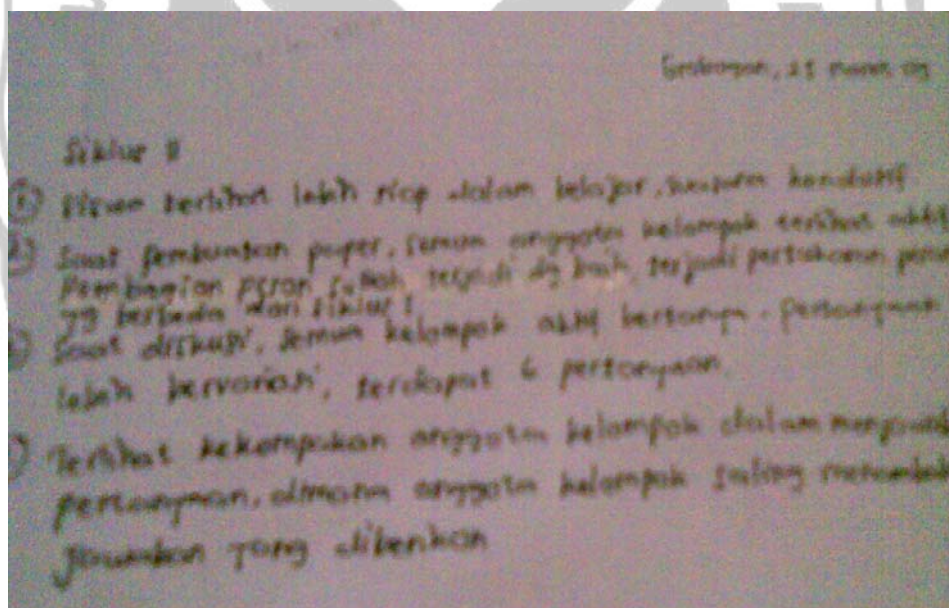 Grobogan, 25 maret 09
Siklus II
① Siswa terlihat lebih siap dalam belajar, suasana kondusif
Saat pembuatan paper, semua anggota kelompok terlihat aktif
Pembagian peran sudah terjadi dg baik, terjadi pertukaran peran
yg berbeda dari siklus I
Saat diskusi, semua kelompok aktif bertanya. Pertanyaan
lebih bervariasi, terdapat 6 pertanyaan.
Terlihat kekompakan anggota kelompok dalam
pertanyaan, dimana anggota kelompok saling
jawaban yang diberikan